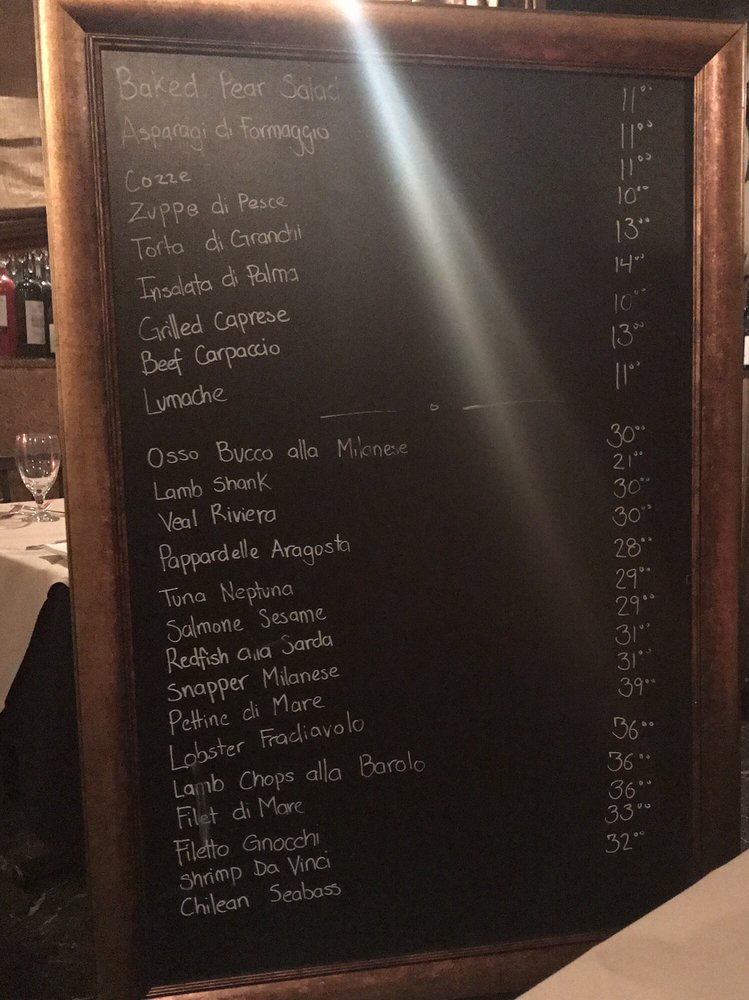 Baked Pear Salad 11⁰⁰
Asparagi di Formaggio 11⁰⁰
Cozze 11⁰⁰
Zuppe di Pesce 10⁰⁰
Torta di Granchi 13⁰⁰
Insalata di Palma 14⁰⁰
Grilled Caprese 10⁰⁰
Beef Carpaccio 13⁰⁰
Lumache 11⁰⁰
Osso Bucco alla Milanese 30⁰⁰
Lamb Shank 21⁰⁰
Veal Riviera 30⁰⁰
Pappardelle Aragosta 30⁰⁰
Tuna Neptuna 28⁰⁰
Salmone Sesame 29⁰⁰
Redfish alla Sarda 29⁰⁰
Snapper Milanese 31⁰⁰
Pettine di Mare 31⁰⁰
Lobster Fradiavolo 39⁰⁰
Lamb Chops alla Barolo 36⁰⁰
Filet di Mare 36⁰⁰
Filetto Gnocchi 36⁰⁰
Shrimp Da Vinci 33⁰⁰
Chilean Seabass 32⁰⁰